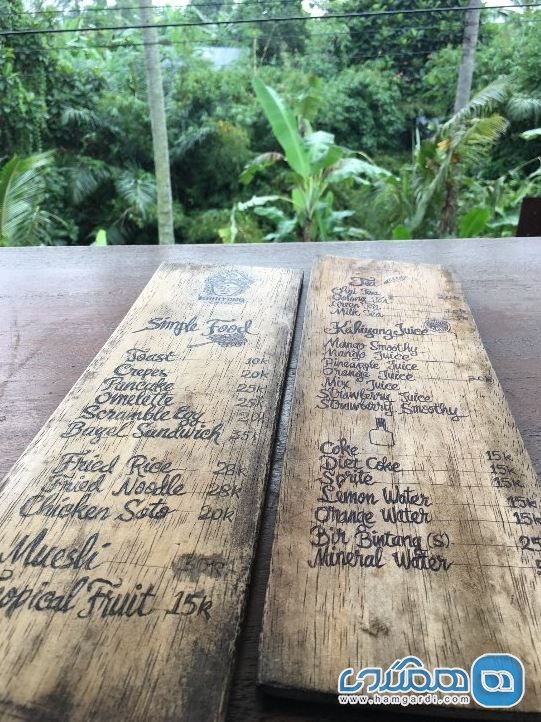 Simple Food
Toast 18k
Crepes 20k
Pancake 25k
Omelette 25k
Scramble Egg 20k
Bagel Sandwich 35k
Fried Rice 28k
Fried Noodle 28k
Chicken Soto 20k
Muesli
Tropical Fruit 15k
Tea
Milk Tea
Kahiyang Juice
Mango Smoothy
Mango Juice
Pineapple Juice
Orange Juice
Mix Juice
Strawberry Juice
Strawberry Smoothy
Coke 15k
Diet Coke 15k
Sprite 15k
Lemon Water 15k
Orange Water 15k
Bir Bintang (S) 25
Mineral Water 5
همگردی
www.hamgardi.com